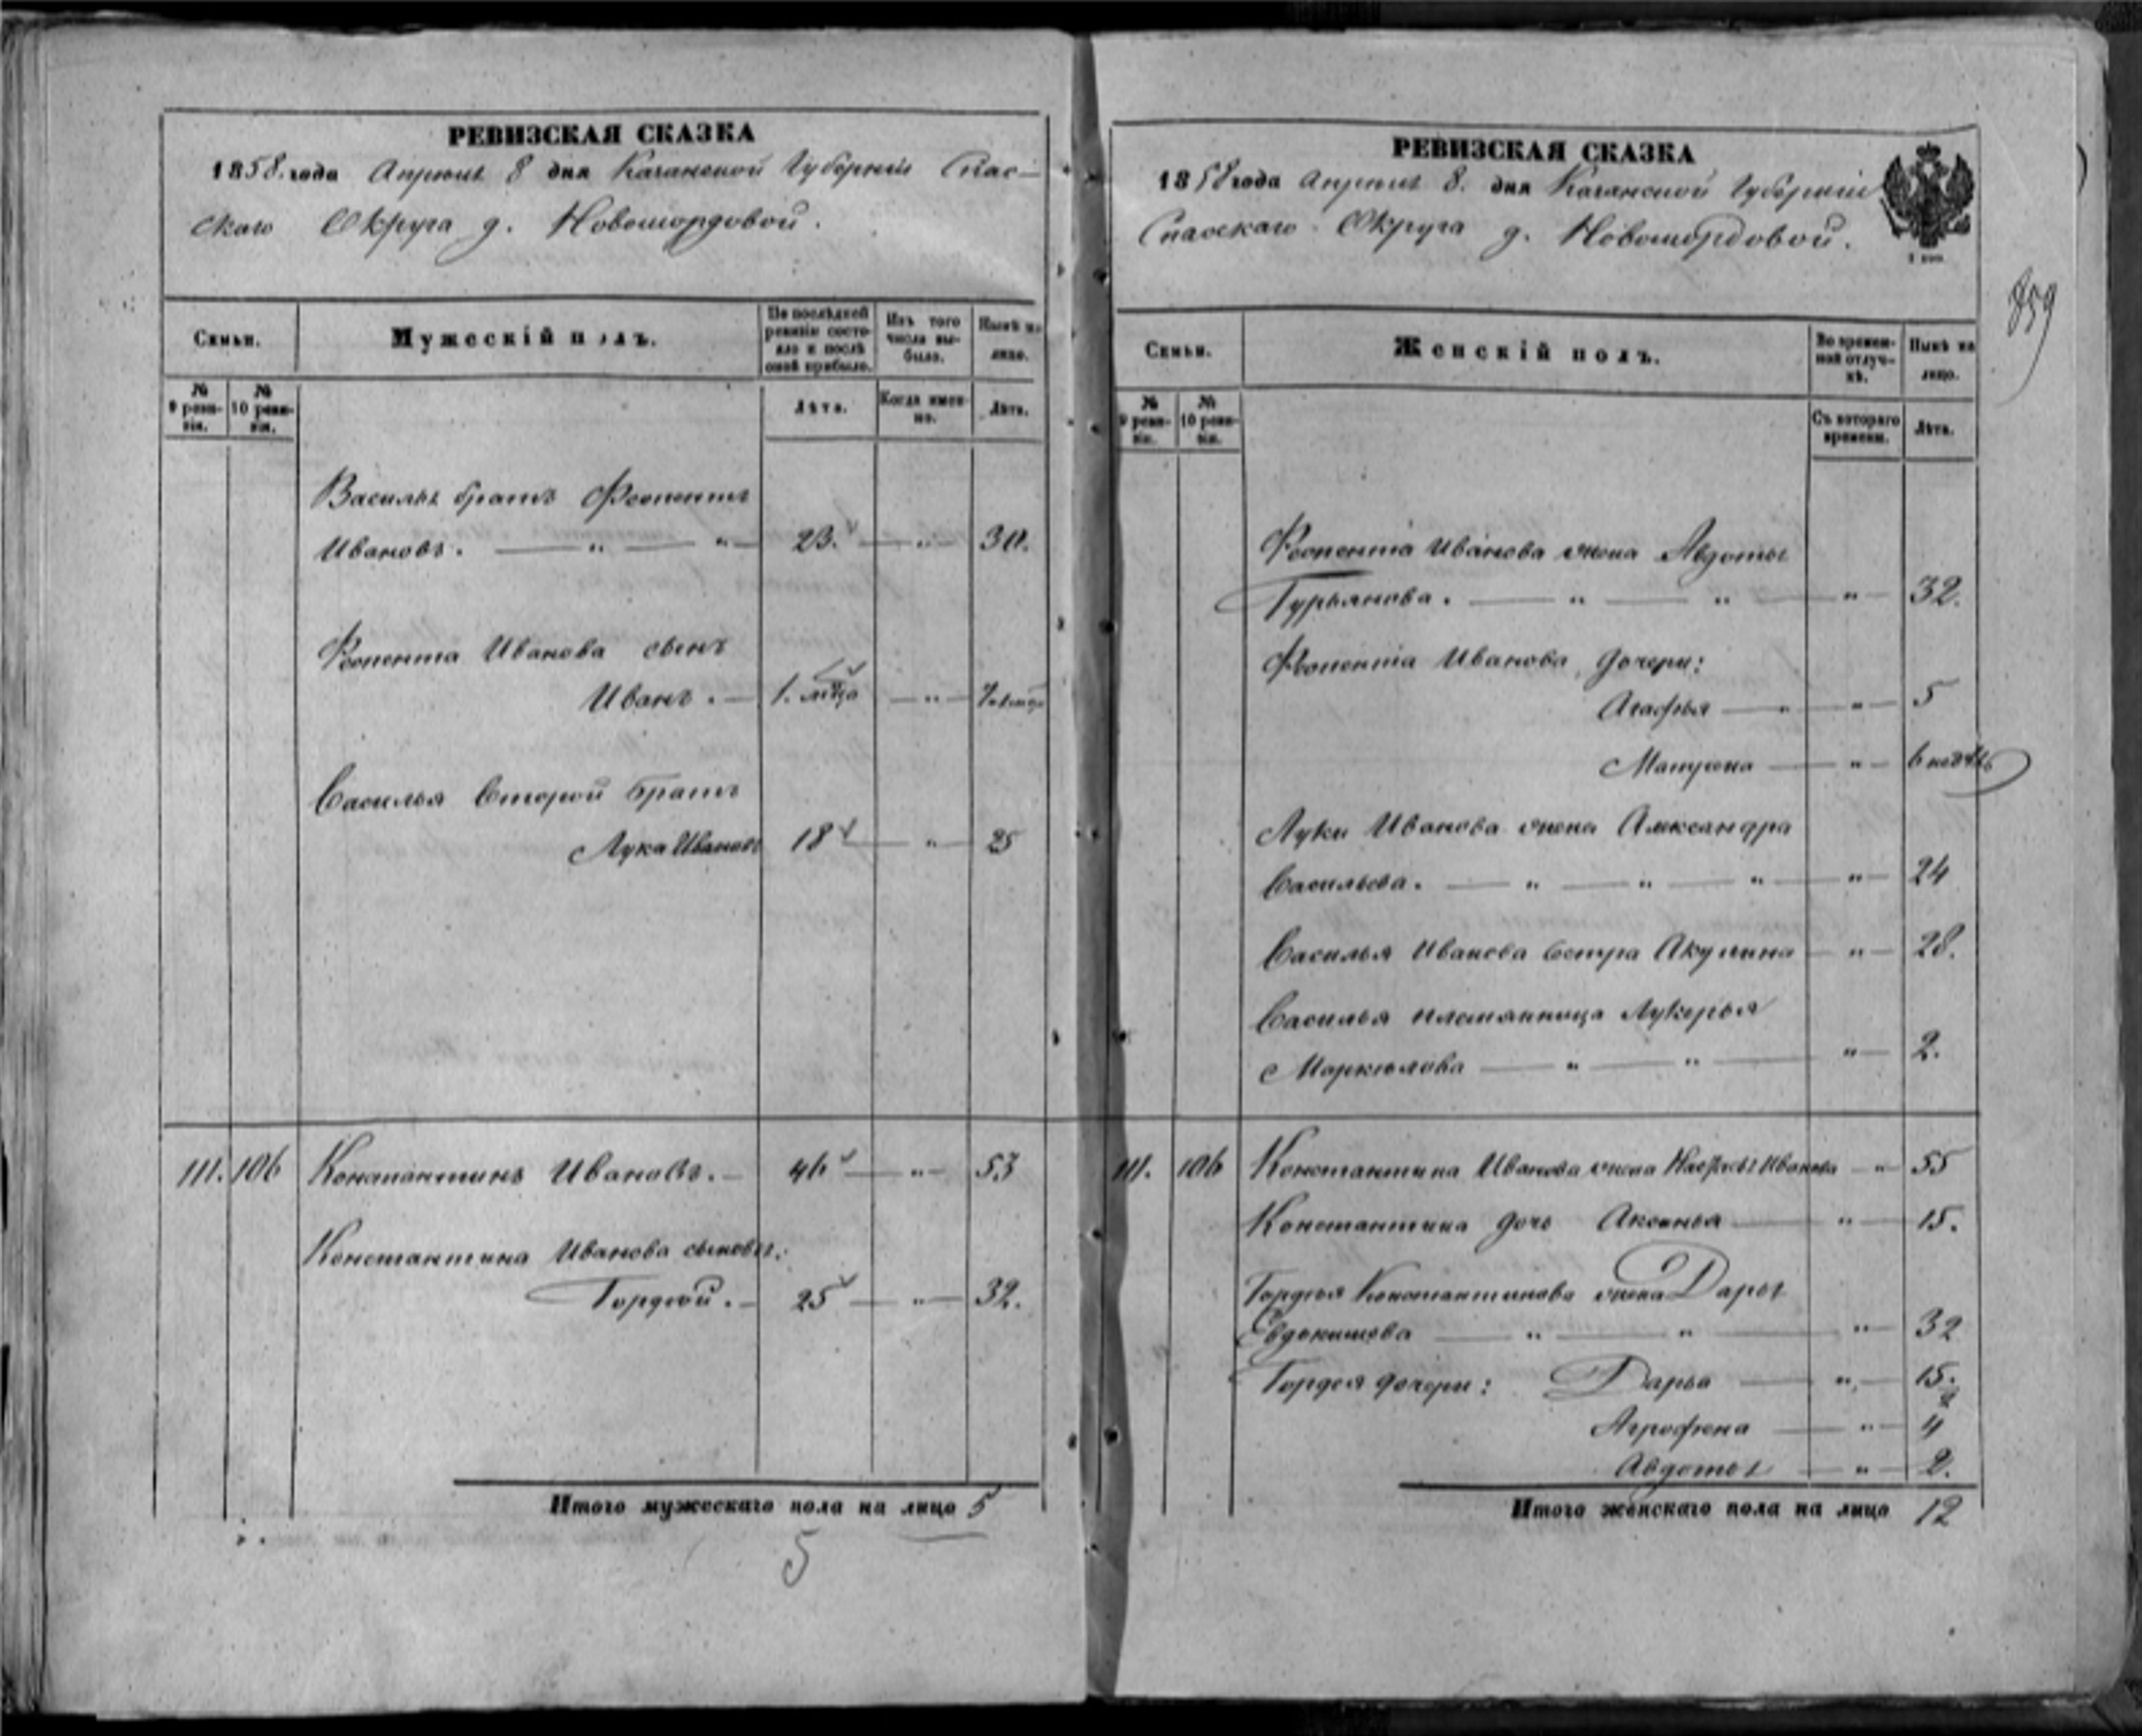 РЕВИЗСКАЯ СКАЗКА
1858. года Апрѣля 8 дня Казанской Губерніи Спас-
скаго Округа д. Новомордовой.
Семьи.
Мужескій полъ.
По послѣдней ревизіи состояло и послѣ оной прибыло.
Изъ того числа выбыло.
Нынѣ на лицо.
№ 9 ревизіи.
№ 10 ревизіи.
Лѣта.
Когда именно.
Лѣта.
Василья братъ Феопентъ
Ивановъ. — " — " — 23. — " — 30.
Феопента Иванова сынъ
Иванъ. — 1. мѣца — " —
Василья второй братъ
Лука Ивановъ 18 — " — 25
111. 106 Константинъ Ивановъ. — 46 — " — 53
Константина Иванова сыновья:
Гордѣй. — 25 — " — 32.
Итого мужескаго пола на лицо 5
5
РЕВИЗСКАЯ СКАЗКА
1858 года Апрѣля 8. дня Казанской Губерніи
Спасскаго Округа д. Новомордовой.
1 коп.
859
Семьи.
Женскій полъ.
Во временной отлучкѣ.
Нынѣ на лицо.
№ 9 ревизіи.
№ 10 ревизіи.
Съ котораго времени.
Лѣта.
Феопента Иванова жена Авдотья
Гурьянова. — " — " — " — 32.
Феопента Иванова дочери:
Агафья — " — " — 5
Матрена — " — 6 недѣль
Луки Иванова жена Александра
Васильева. — " — " — " — " — 24
Василья Иванова сестра Акулина — " — 28.
Василья племянница Лукерья
Маркелова — " — " — " — 2.
111. 106 Константина Иванова жена Настасья Иванова — " — 55
Константина дочь Аксинья — " — 15.
Гордѣя Константинова жена Дарья
Евдокимова — " — " — " — 32
Гордея дочери: Дарья — " — 15.
Агрофена — " —
Авдотья — " — 2.
Итого женскаго пола на лицо 12